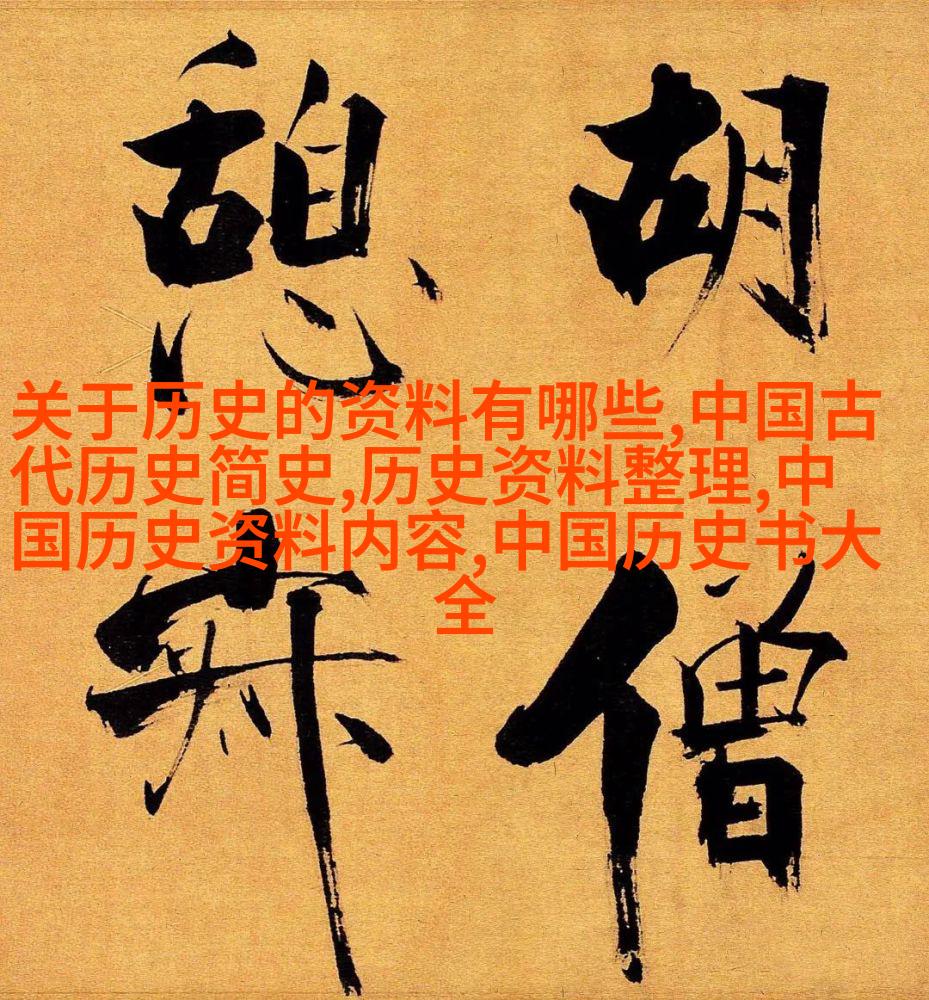 胡僧
憩寂
关于历史的资料有哪些,中国古
代历史简史,历史资料整理,中
国历史资料内容,中国历史书大
全